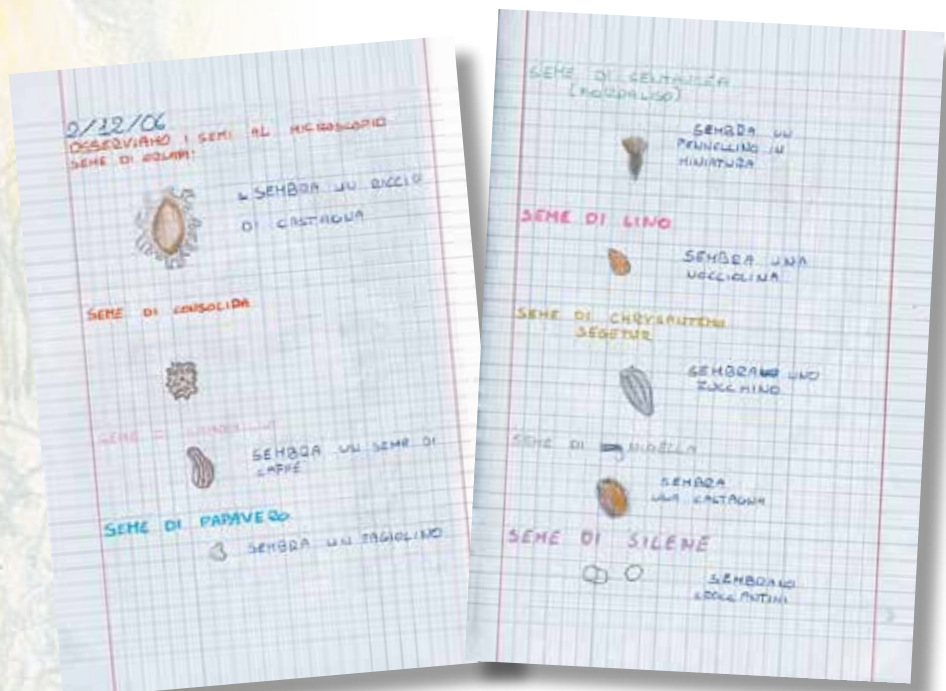 2/12/06
OSSERVIAMO I SEMI AL MICROSCOPIO
SEME DI
SEMBRA UN RICCIO
DI CASTAGNA
SEME DI CONSOLIDA
SEME
SEMBRA UN SEME DI
CAFFÈ
SEME DI PAPAVERO
SEMBRA UN FAGIOLINO
SEME DI CENTAUREA
(FIORDALISO)
SEMBRA UN
PENNELLINO IN
MINIATURA
SEME DI LINO
SEMBRA UNA
NOCCIOLINA
SEME DI CHRYSANTEMU
SEGETUM
SEMBRA UNO
ZUCCHINO
SEME DI NIGELLA
SEMBRA
UNA CASTAGNA
SEME DI SILENE
SEMBRANO
CROCCANTINI